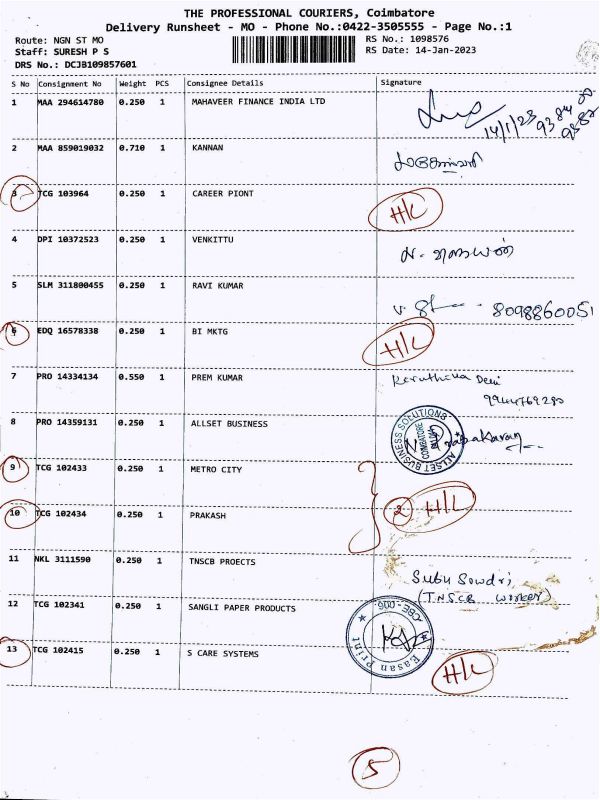 THE PROFESSIONAL COURIERS, Coimbatore
Delivery Runsheet - MO - Phone No.:0422-3505555 - Page No.:1
Route: NGN ST MO
RS No.: 1098576
Staff: SURESH P S
RS Date: 14-Jan-2023
DRS No.: DCJB109857601
S No Consignment No Weight PCS Consignee Details Signature
1 MAA 294614780 0.250 1 MAHAVEER FINANCE INDIA LTD
14/1/23
2 MAA 859019032 0.710 1 KANNAN
3 TCG 103964 0.250 1 CAREER PIONT H/L
4 DPI 10372523 0.250 1 VENKITTU
5 SLM 311800455 0.250 1 RAVI KUMAR
8098860051
6 EDQ 16578338 0.250 1 BI MKTG H/L
7 PRO 14334134 0.550 1 PREM KUMAR
8 PRO 14359131 0.250 1 ALLSET BUSINESS
ALLSET BUSINESS SOLUTIONS
COIMBATORE
9 TCG 102433 0.250 1 METRO CITY
10 TCG 102434 0.250 1 PRAKASH
2 H/L
11 NKL 3111590 0.250 1 TNSCB PROECTS
(TNSCB WORKER)
12 TCG 102341 0.250 1 SANGLI PAPER PRODUCTS
Easan Print
CBE - 006
13 TCG 102415 0.250 1 S CARE SYSTEMS H/L
5